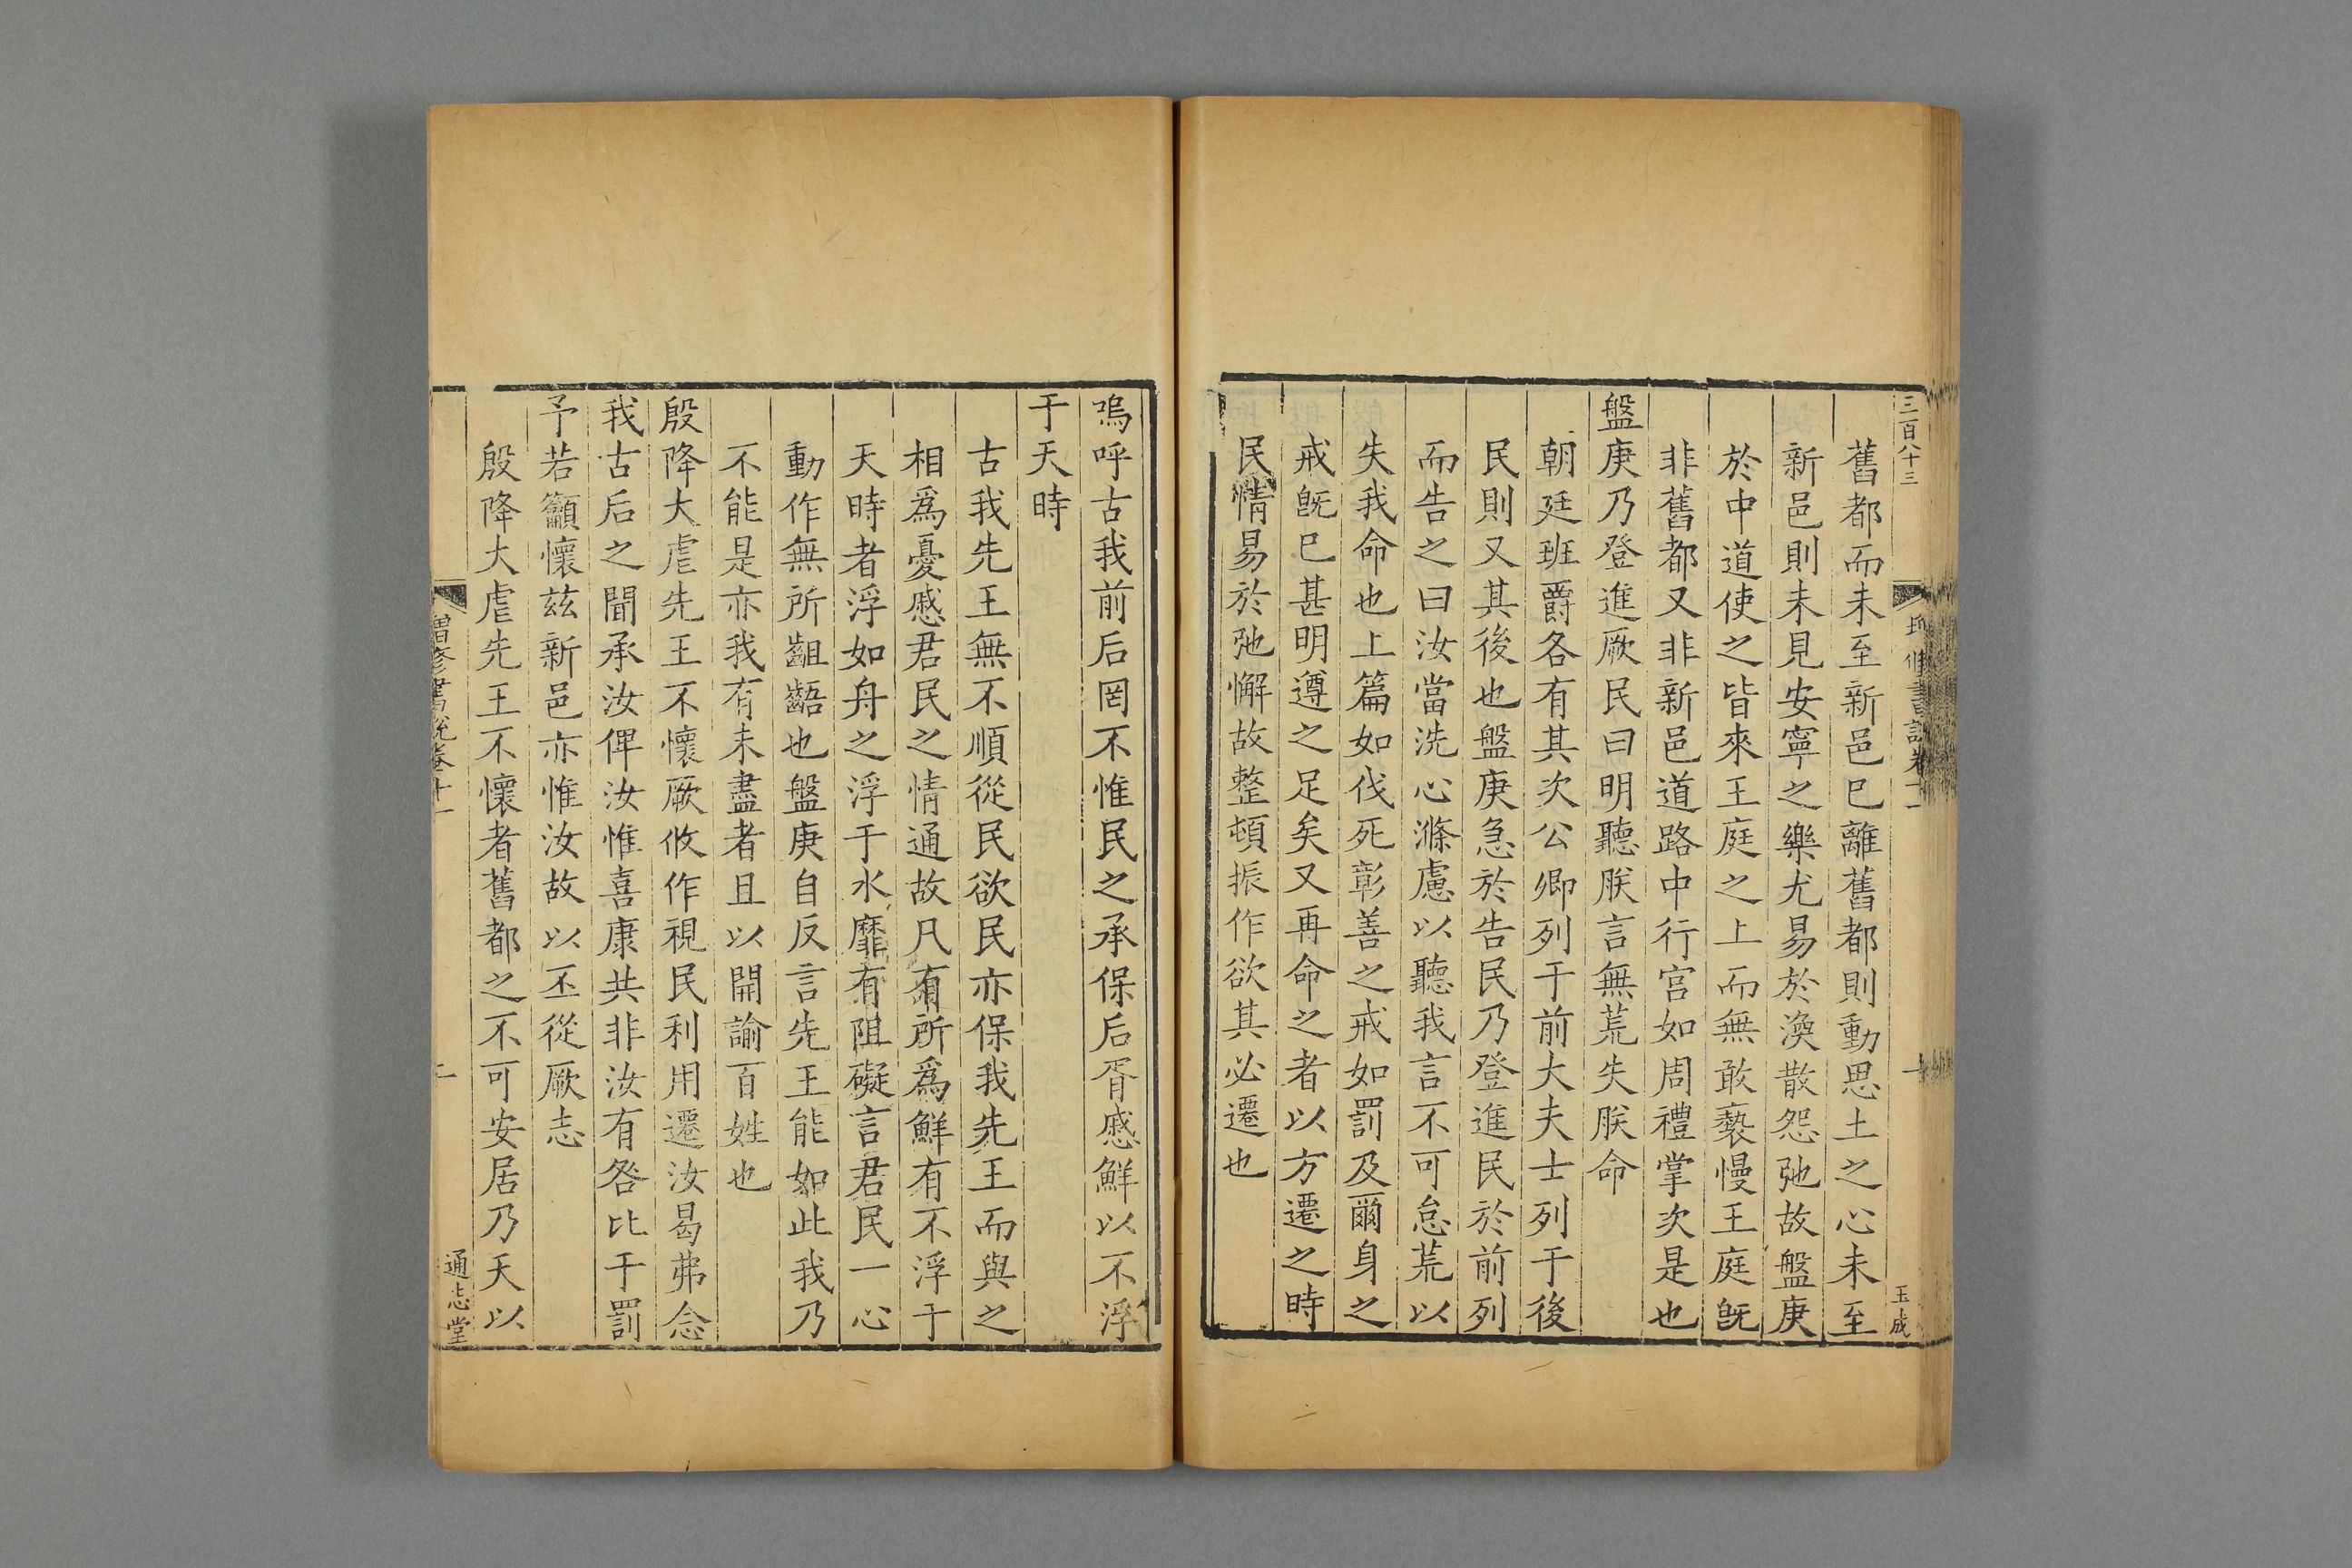 三百八十三
舊都而未至新邑巳離舊都則動思土之心未至
新邑則未見安寧之樂尤易於渙散怨弛故盤庚
於中道使之皆來王庭之上而無敢褻慢王庭旣
非舊都又非新邑道路中行宫如周禮掌次是也
盤庚乃登進厥民曰明聽朕言無荒失朕命
朝廷班爵各有其次公卿列于前大夫士列于後
民則又其後也盤庚急於告民乃登進民於前列
而告之曰汝當洗心滌慮以聽我言不可怠荒以
失我命也上篇如伐死彰善之戒如罰及爾身之
戒旣巳甚明遵之足矣又再命之者以方遷之時
民情易於弛懈故整頓振作欲其必遷也
書說卷十一
玉成
嗚呼古我前后罔不惟民之承保后胥慼鮮以不浮
于天時
古我先王無不順從民欲民亦保我先王而與之
相爲憂慼君民之情通故凡有所爲鮮有不浮于
天時者浮如舟之浮于水靡有阻礙言君民一心
動作無所齟齬也盤庚自反言先王能如此我乃
不能是亦我有未盡者且以開諭百姓也
殷降大虐先王不懷厥攸作視民利用遷汝曷弗念
我古后之聞承汝俾汝惟喜康共非汝有咎比于罰
予若籲懷兹新邑亦惟汝故以丕從厥志
殷降大虐先王不懷者舊都之不可安居乃天以
增修書說卷十一
通志堂